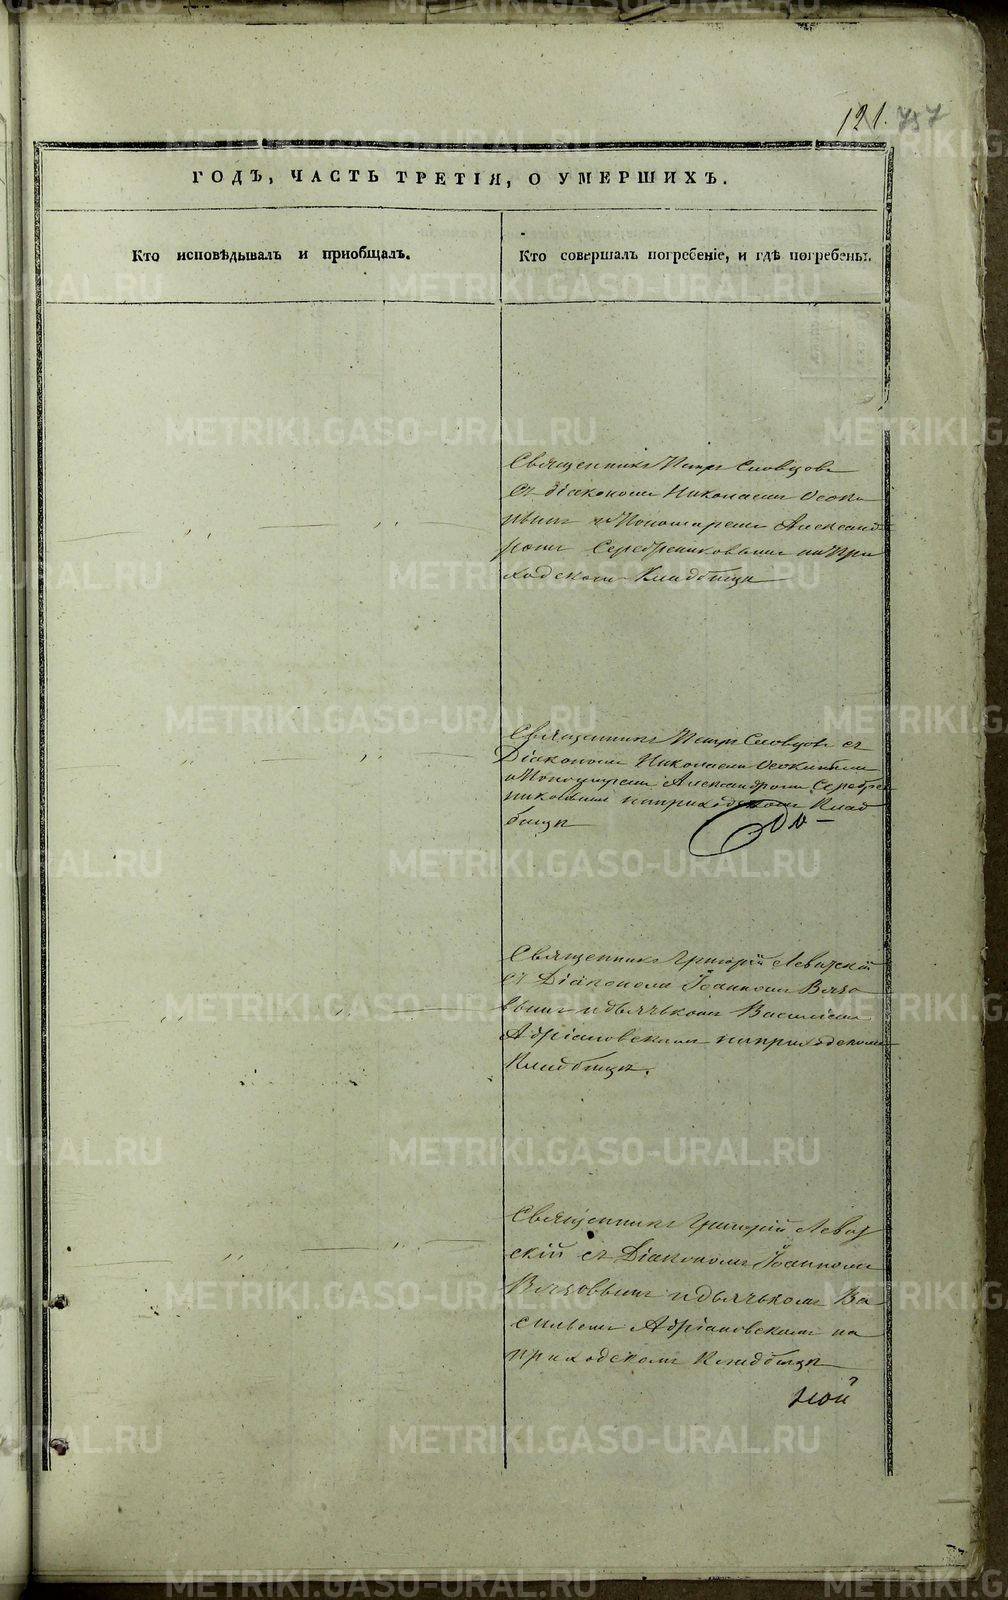 121. 757
ГОДЪ, ЧАСТЬ ТРЕТІЯ, О УМЕРШИХЪ.
Кто исповѣдывалъ и пріобщалъ.
Кто совершалъ погребеніе, и гдѣ погребены.
Священникъ Петръ Словцовъ
съ діакономъ Николаемъ Осоки
нымъ и Пономаремъ Александ
ромъ Серебрениковымъ на При
ходскомъ Кладбищѣ
Священникъ Петръ Словцовъ съ
Діакономъ Николаемъ Осокинымъ
и Пономаремъ Александромъ Серебре
никовымъ на приходскомъ Клад
бищѣ
Священникъ Григорій Левитскій
съ Діакономъ Іоанномъ Вязо
вымъ и дьячькомъ Василіемъ
Адріановскимъ на приходскомъ
Кладбищѣ.
Священникъ Григорій Левит
скій съ Діакономъ Іоанномъ
Вязоввымъ и дьячькомъ Ва
сильемъ Адріановскимъ на
приходскомъ Кладбищѣ
ной
METRIKI.GASO-URAL.RU